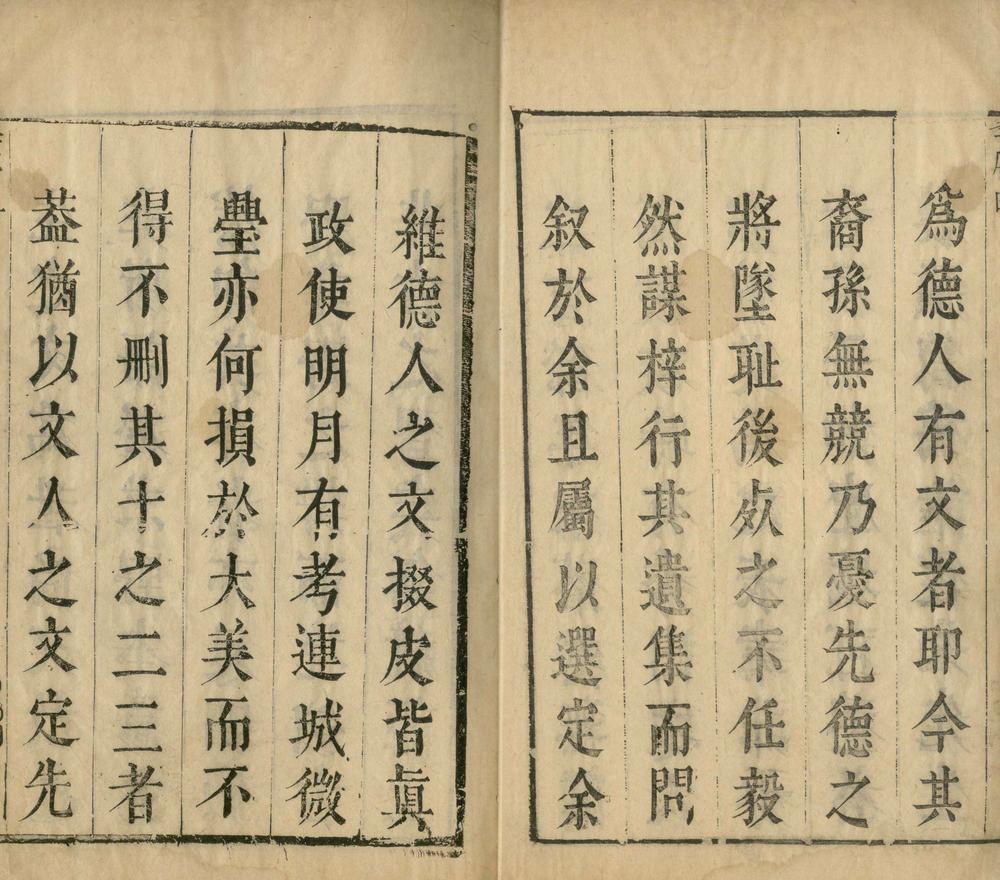 爲德人有文者耶今其
裔孫無競乃憂先德之
將墜耻後死之不任毅
然謀梓行其遺集而問
叙於余且屬以選定余
維德人之文掇皮皆眞
政使明月有考連城微
璺亦何損於大美而不
得不刪其十之二三者
葢猶以文人之文定先